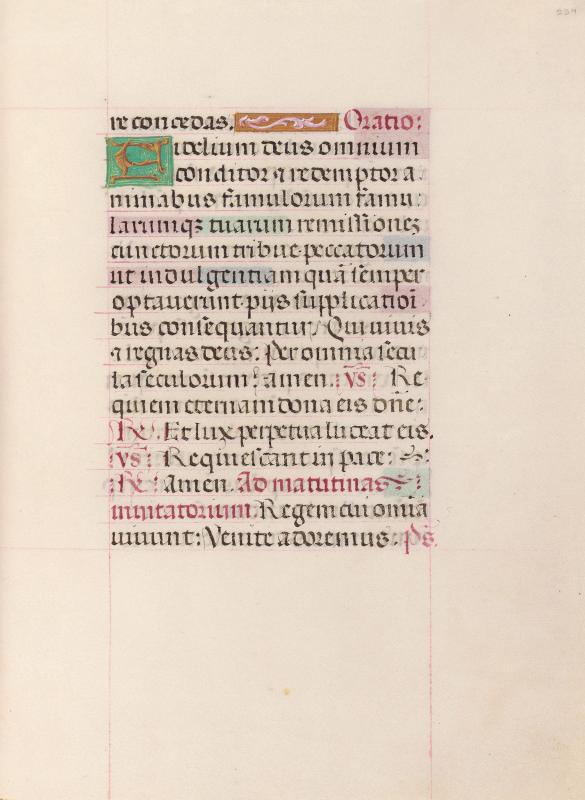 234
re concedas. Oratio:
Fidelium deus omnium
conditor ꝛ redemptor a
nimabus famulorum famu:
larumqꝫ tuarum remissionez
cunctorum tribue peccatorum
ut indulgentiam quā semper
optauerint piis supplicatioī
bus consequantur. Qui uiuis
ꝛ regnas deus: per omnia secu
la seculorum: amen: v̄s: Re
quiem eternam dona eis dn̄e:
R̄e. Et lux perpetua luceat eis.
v̄s: Requiescant in pace:
R̄e: Amen. Ad matutinas:
inuitatorium. Regem cui omīa
uiuunt: Venite adoremus. p̄s.